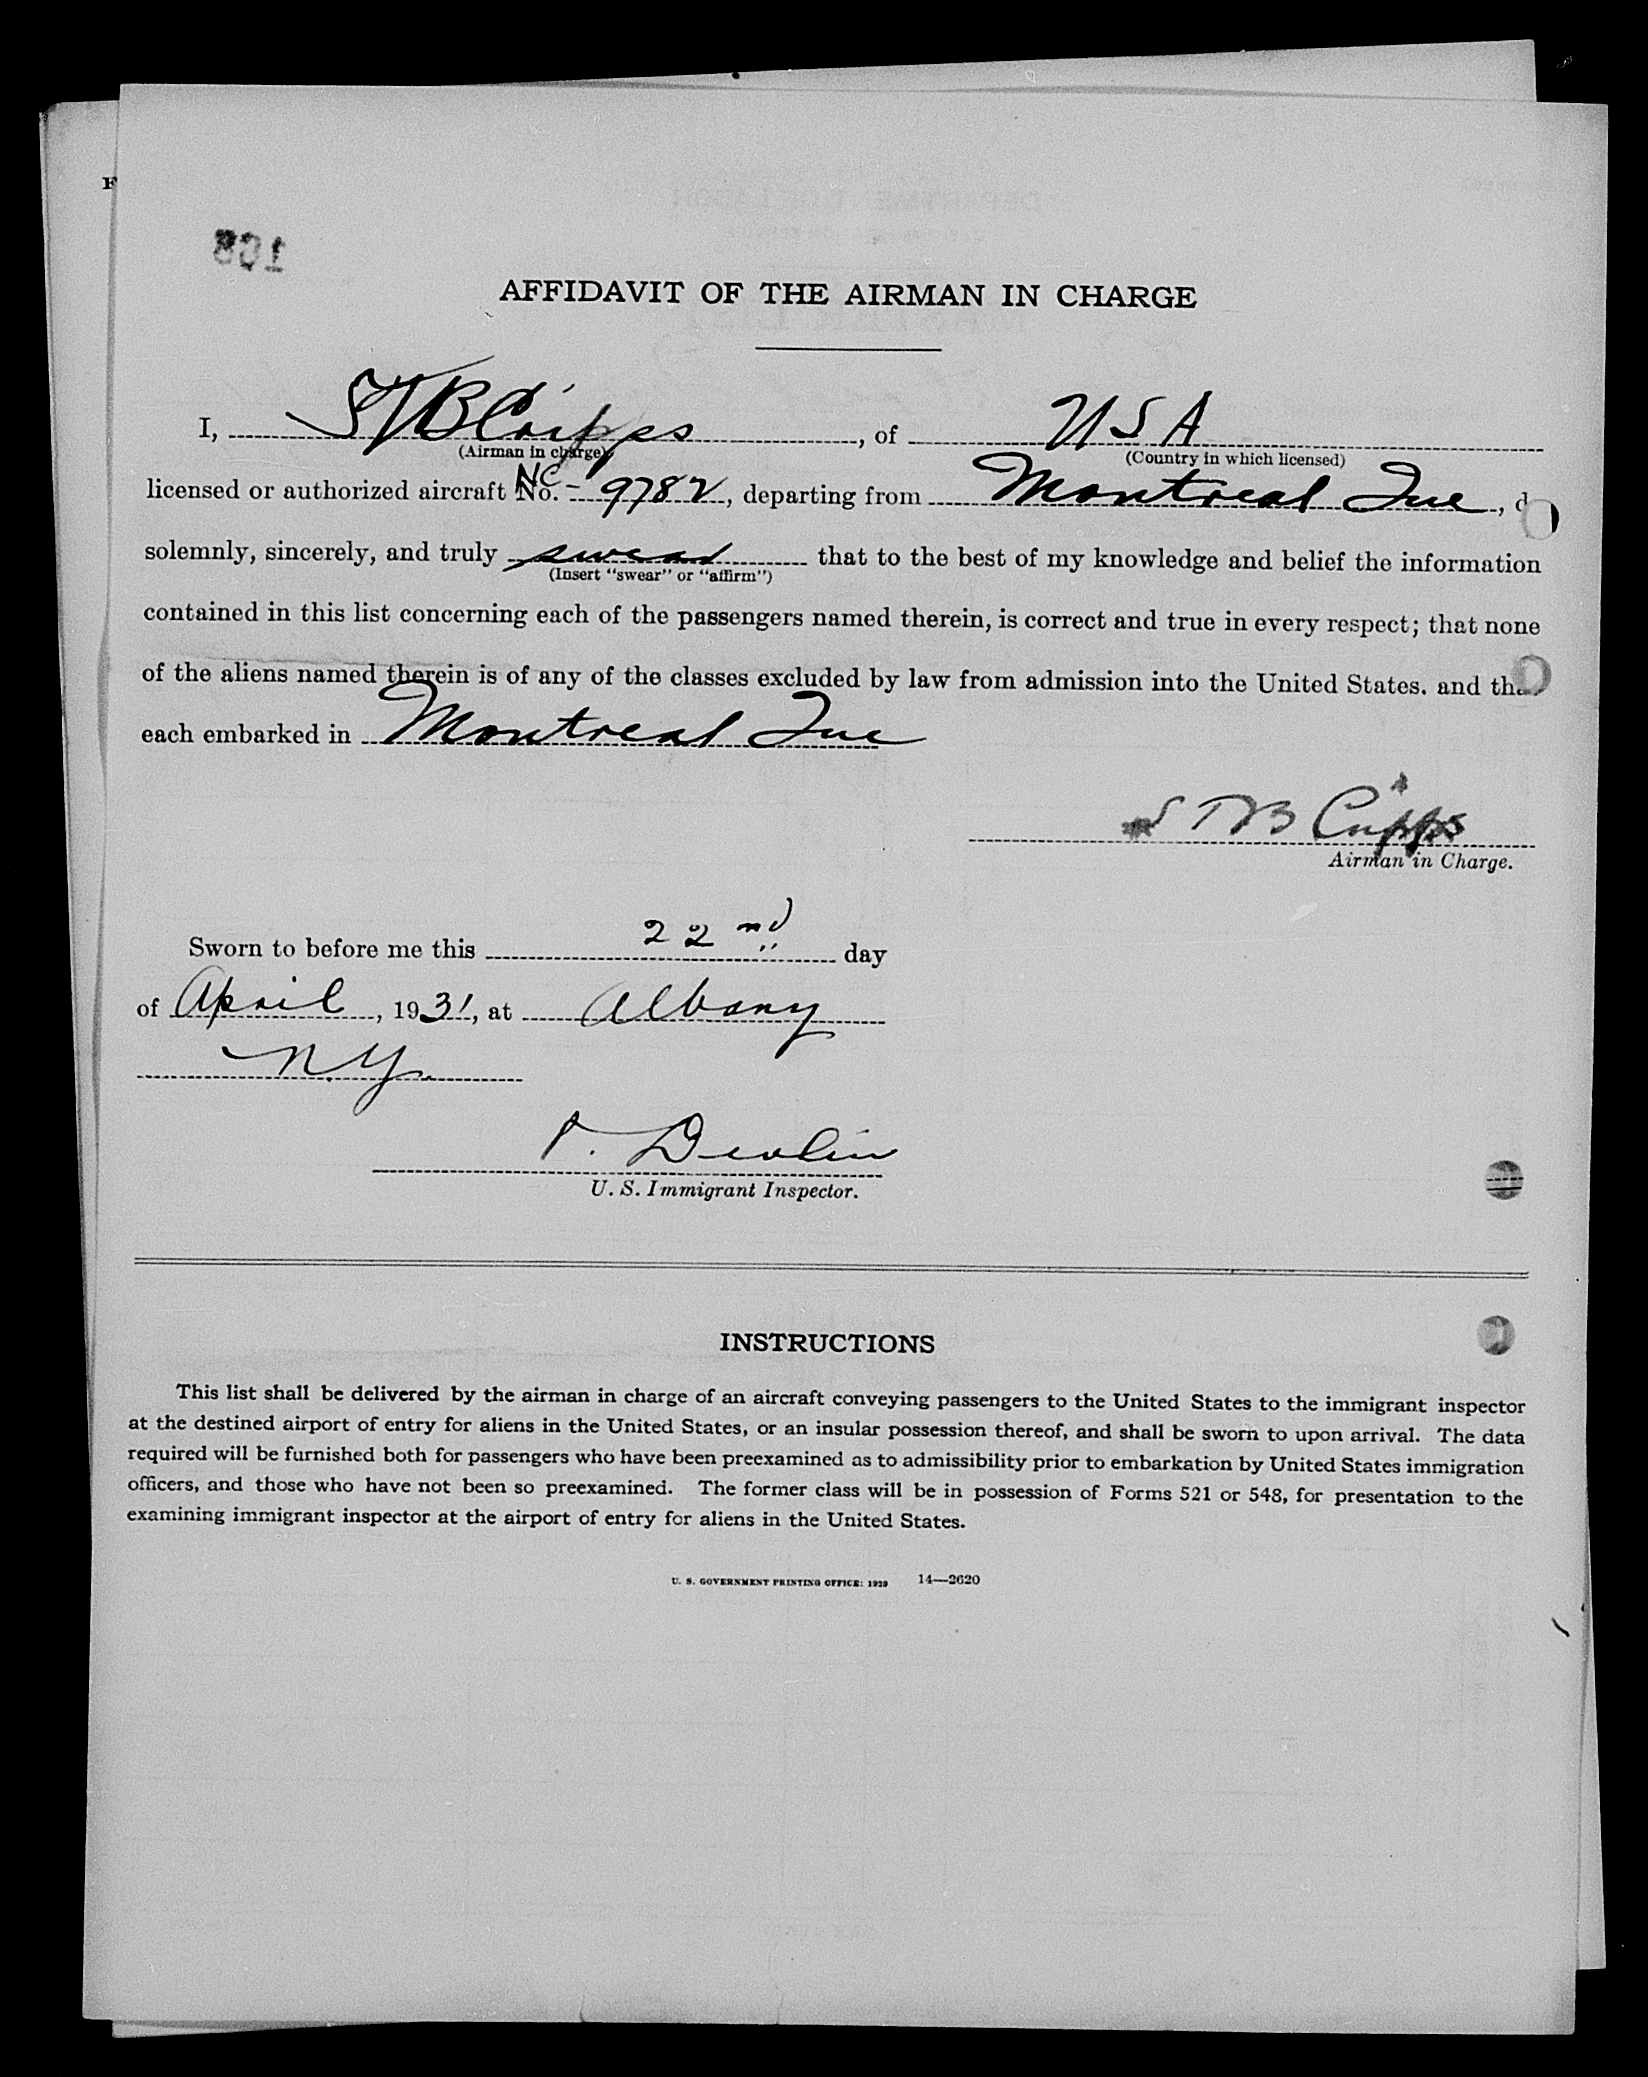 F
108
AFFIDAVIT OF THE AIRMAN IN CHARGE
I, STB Cripps, of USA
(Airman in charge) (Country in which licensed)
licensed or authorized aircraft No. NC - 9782, departing from Montreal Que, d
solemnly, sincerely, and truly swear that to the best of my knowledge and belief the information
(Insert "swear" or "affirm")
contained in this list concerning each of the passengers named therein, is correct and true in every respect; that none
of the aliens named therein is of any of the classes excluded by law from admission into the United States, and tha
each embarked in Montreal Que
STB Cripps
Airman in Charge.
Sworn to before me this 22nd day
of April, 1931, at Albany
N.Y.
P. Devlin
U. S. Immigrant Inspector.
INSTRUCTIONS
This list shall be delivered by the airman in charge of an aircraft conveying passengers to the United States to the immigrant inspector
at the destined airport of entry for aliens in the United States, or an insular possession thereof, and shall be sworn to upon arrival. The data
required will be furnished both for passengers who have been preexamined as to admissibility prior to embarkation by United States immigration
officers, and those who have not been so preexamined. The former class will be in possession of Forms 521 or 548, for presentation to the
examining immigrant inspector at the airport of entry for aliens in the United States.
U. S. GOVERNMENT PRINTING OFFICE: 1929 14—2620